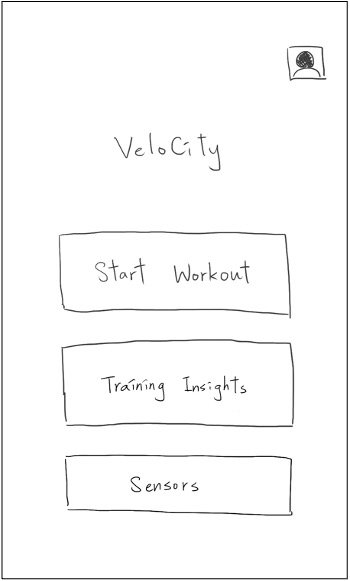 VeloCity
Start Workout
Training Insights
Sensors